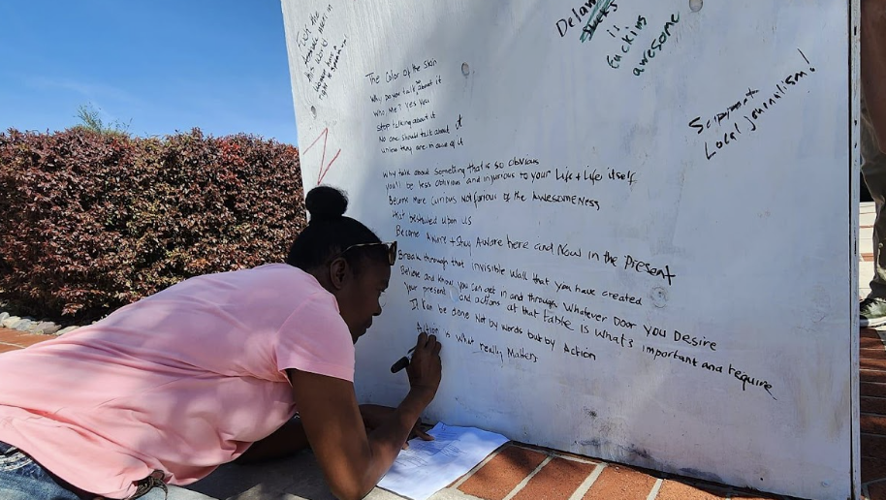 Fuck the
in
this World!
Women have a
right to
Delaw
is
fuckins
awesome
Support
Local journalism!
The Color of the Skin
Why do you talk about it
Who Me? Yes You
Stop talking about it
No one should talk about it
unless they are in awe of it
Why talk about something that is so obvious
You'll be less oblivious and injurious to your Life + Life itself
Become more curious Not furious of the Awesomeness
that bestowed upon us
Become Aware + Stay Aware here and Now in the Present
Break through that invisible Wall that you have created
Believe and know you can get in and through Whatever Door You Desire
Your present and actions at that table Is What's important and require
It Can be done Not by words but by Action
Action is what really Matters